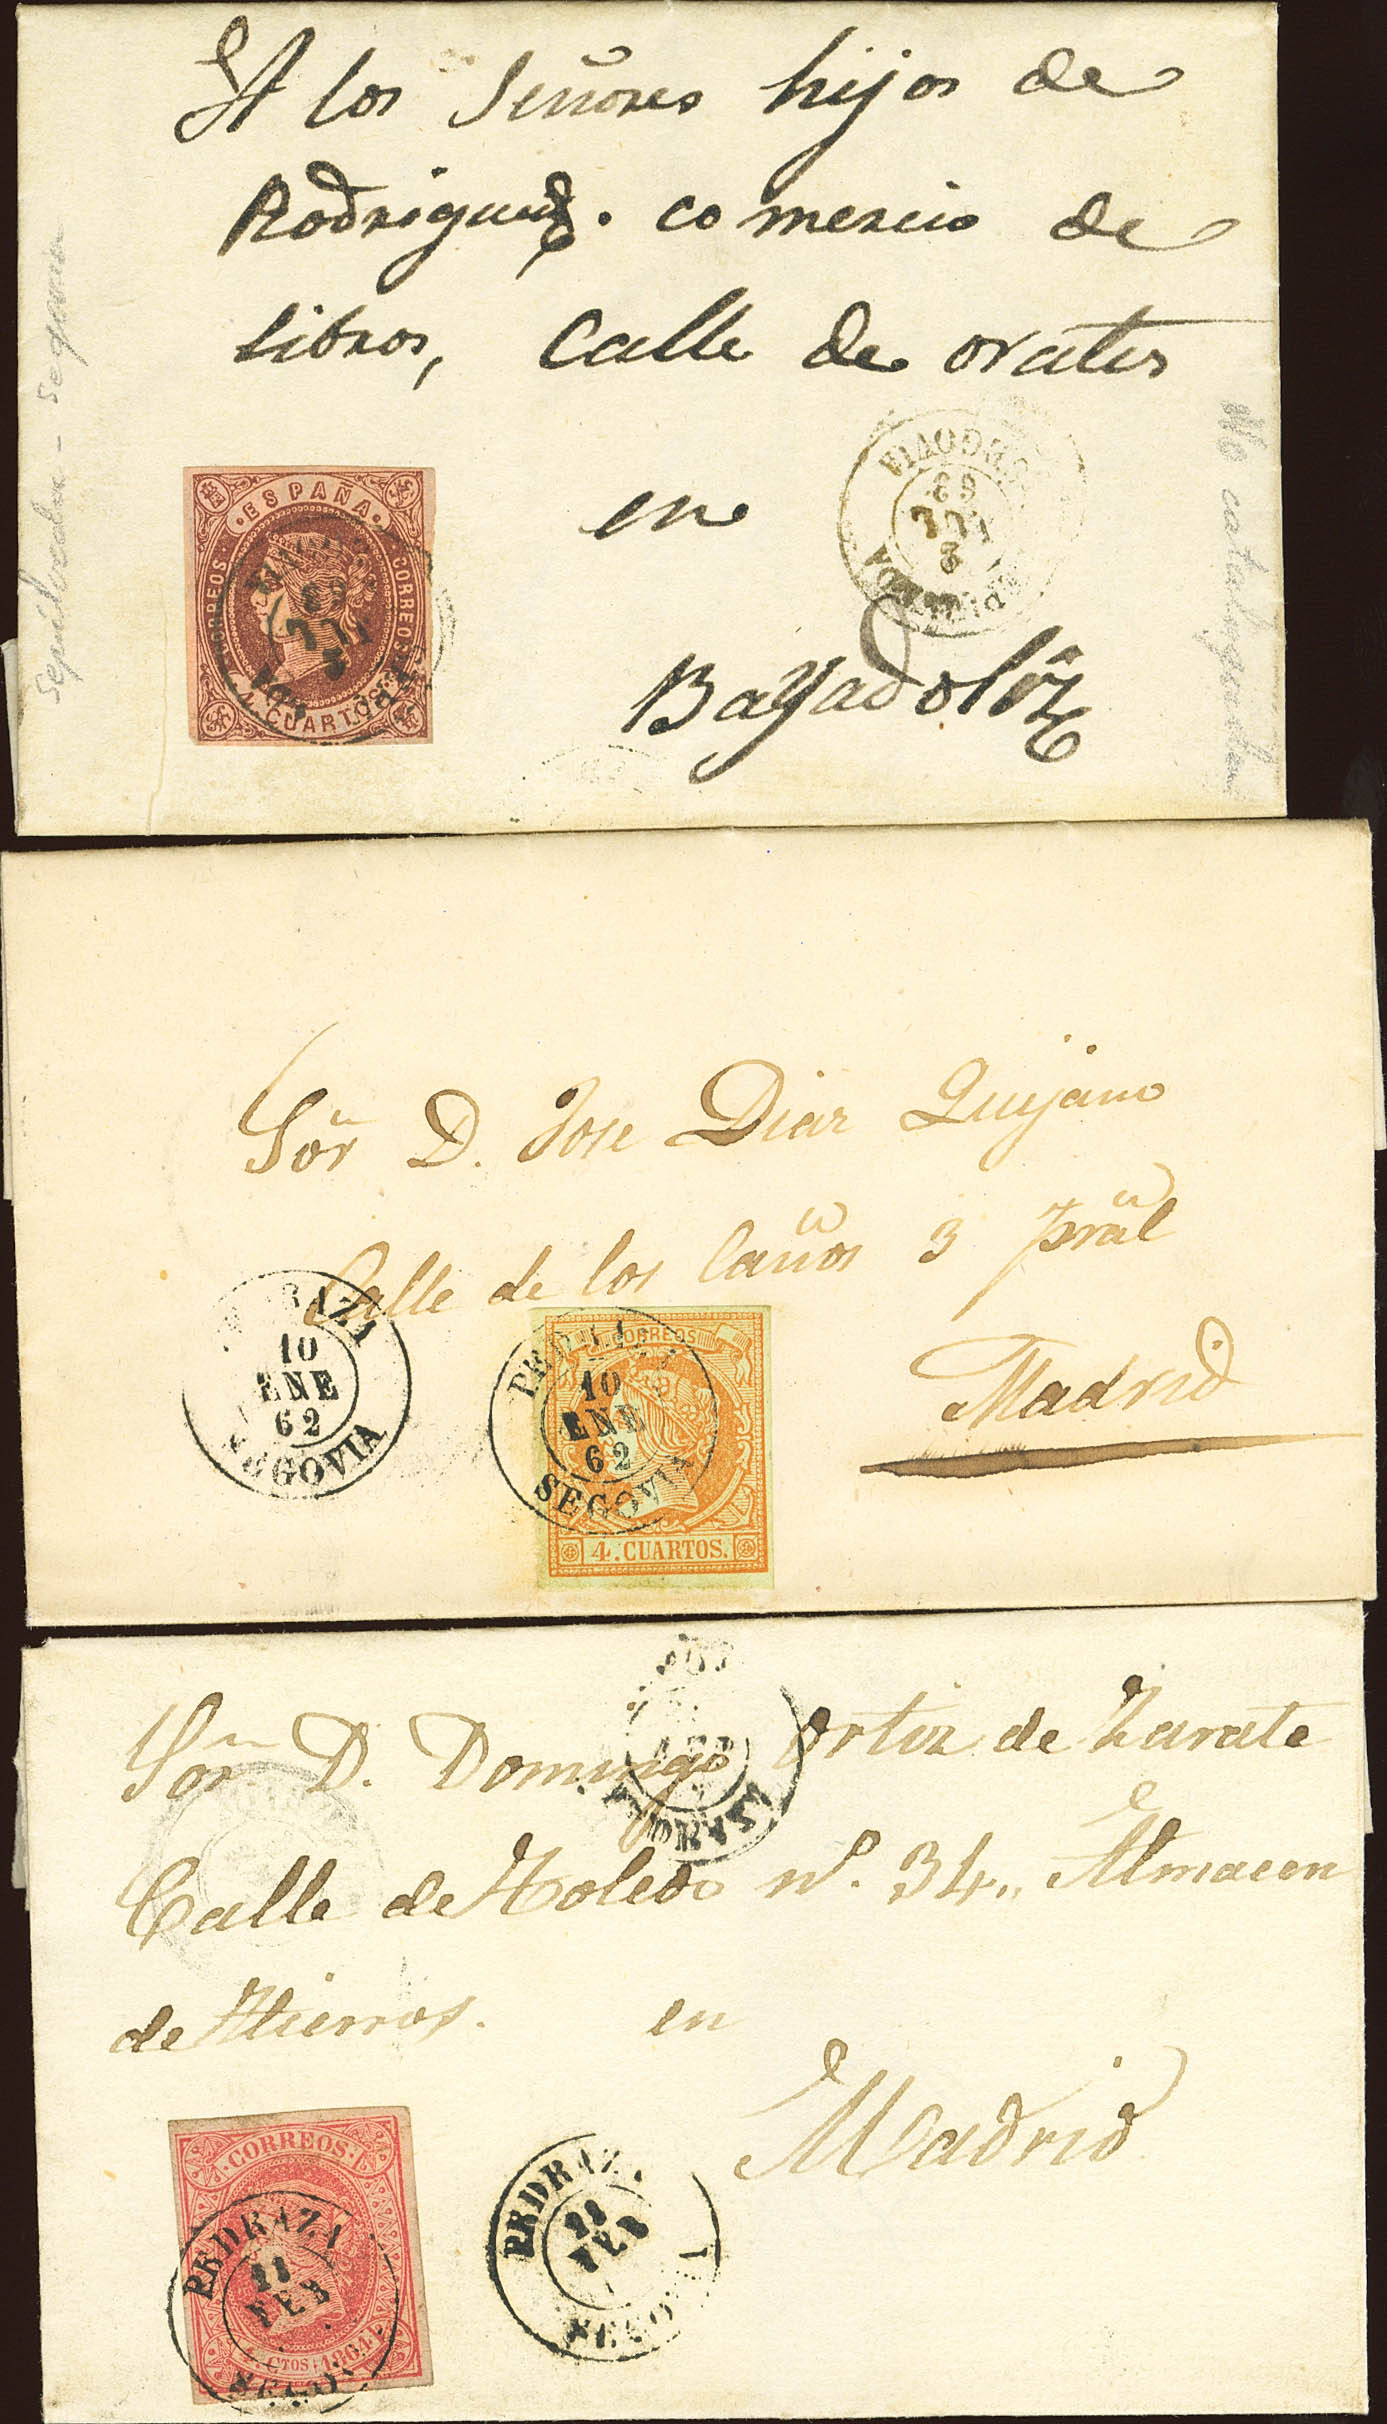 A los Señores hijos de
Rodriguez. comercio de
libros, Calle de orates
en
Bayadoliz
ESPAÑA
CORREOS
CORREOS
4 CUARTOS
2
JUL
63
SEGOVIA
2
JUL
63
No catalogada
Sor D. Jose Diaz Quijano
Calle de los Caños 3 pral
Madrid
PEDRAZA
10
ENE
62
SEGOVIA
CORREOS
PEDRAZA
10
ENE
62
SEGOVIA
4. CUARTOS.
Sor D. Domingo Ortiz de Zarate
Calle de Toledo nº. 34,, Almacen
de Hierros. en
Madrid
CORREOS
PEDRAZA
FEB
CTOS 1864
PEDRAZA
FEB
SEGOVIA